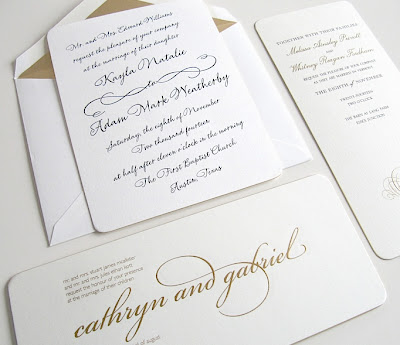 Mr. and Mrs. Edward Williams
request the pleasure of your company
at the marriage of their daughter
Kayla Natalie
to
Adam Mark Weatherby
Saturday, the eighth of November
Two thousand fourteen
at half after eleven o'clock in the morning
The First Baptist Church
Austin, Texas
TOGETHER WITH THEIR FAMILIES
Melissa Ainsley Powell
and
Whitney Reagan
REQUEST THE PLEASURE OF YOUR COMPANY
AS THEY ARE MARRIED BY FAMILY
THE EIGHTH of NOVEMBER
TWENTY FOURTEEN
mr and mrs stuart james mcallister
and mr and mrs jules ethan scott
request the honour of your presence
at the marriage of their children
cathryn and gabriel
of august